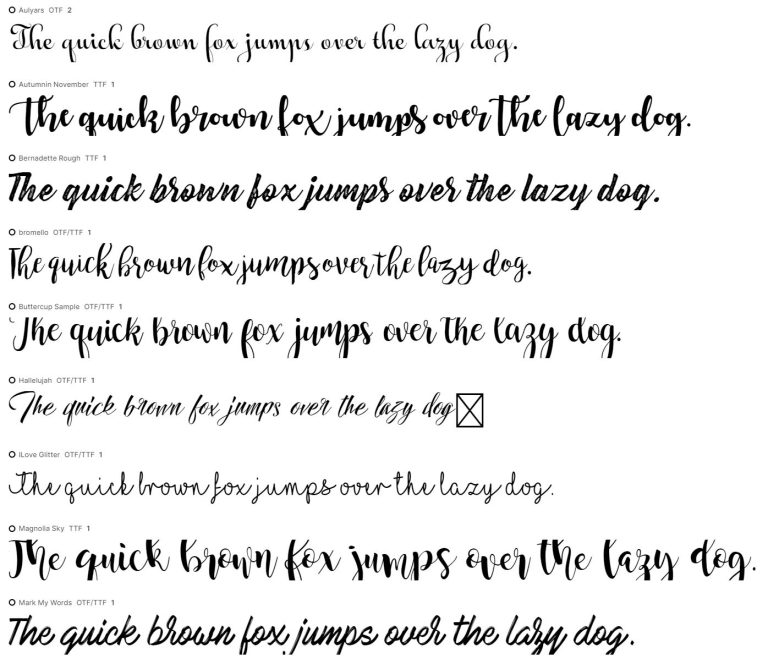 Aulyars OTF 2
The quick brown fox jumps over the lazy dog.
Autumnin November TTF 1
The quick brown fox jumps over the lazy dog.
Bernadette Rough TTF 1
The quick brown fox jumps over the lazy dog.
bromello OTF/TTF 1
The quick brown fox jumps over the lazy dog.
Buttercup Sample OTF/TTF 1
The quick brown fox jumps over the lazy dog.
Hallelujah OTF/TTF 1
The quick brown fox jumps over the lazy dog
ILove Glitter OTF/TTF 1
The quick brown fox jumps over the lazy dog.
Magnolia Sky TTF 1
The quick brown fox jumps over the lazy dog.
Mark My Words OTF/TTF 1
The quick brown fox jumps over the lazy dog.